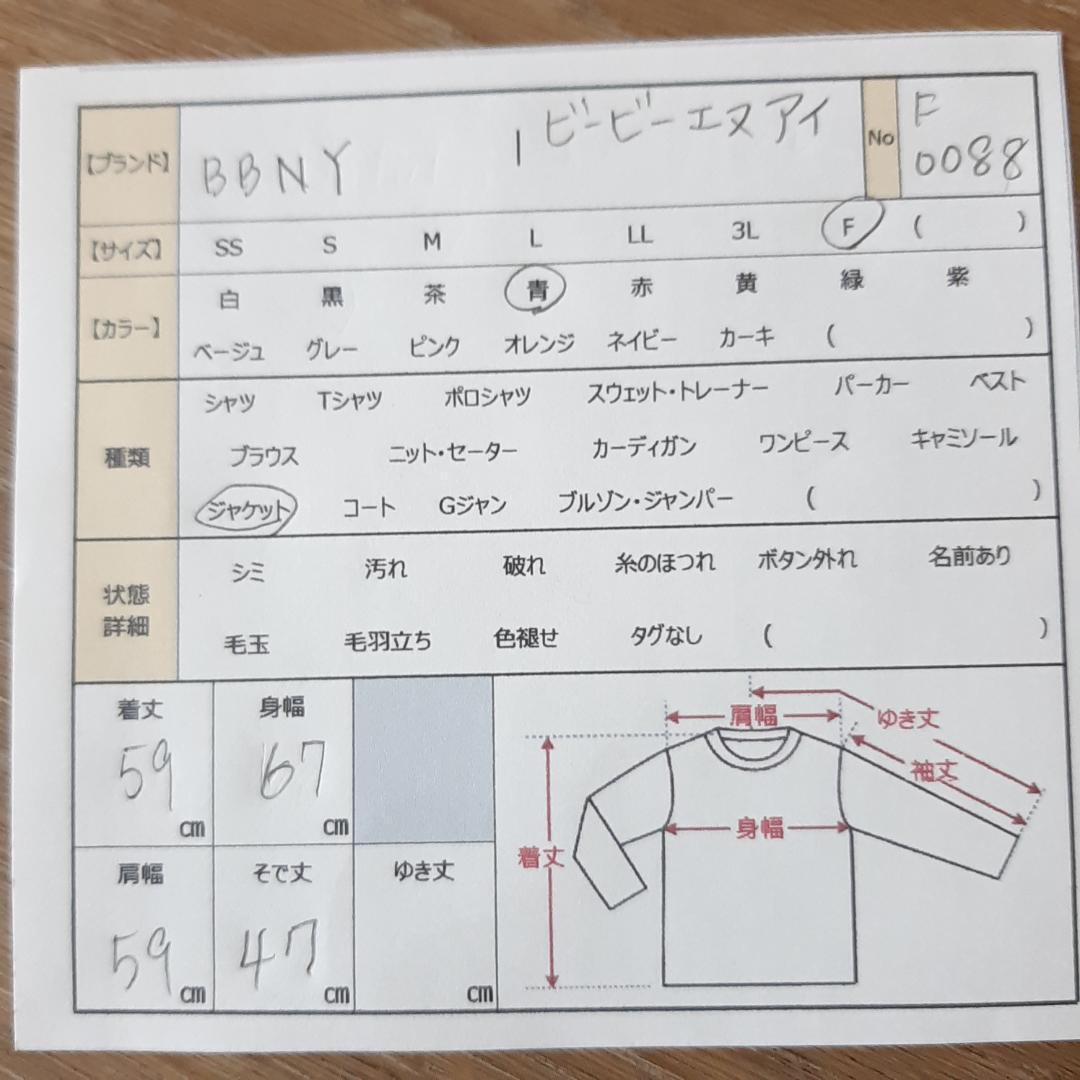 【ブランド】 BBNY | ビービーエヌアイ No F 0088
【サイズ】 SS S M L LL 3L F ( )
【カラー】 白 黒 茶 青 赤 黄 緑 紫
ベージュ グレー ピンク オレンジ ネイビー カーキ ( )
種類 シャツ Tシャツ ポロシャツ スウェット・トレーナー パーカー ベスト
ブラウス ニット・セーター カーディガン ワンピース キャミソール
ジャケット コート Gジャン ブルゾン・ジャンパー ( )
状態詳細 シミ 汚れ 破れ 糸のほつれ ボタン外れ 名前あり
毛玉 毛羽立ち 色褪せ タグなし ( )
着丈 身幅
59 cm 67 cm
肩幅 そで丈 ゆき丈
59 cm 47 cm cm
肩幅 ゆき丈
袖丈
身幅
着丈